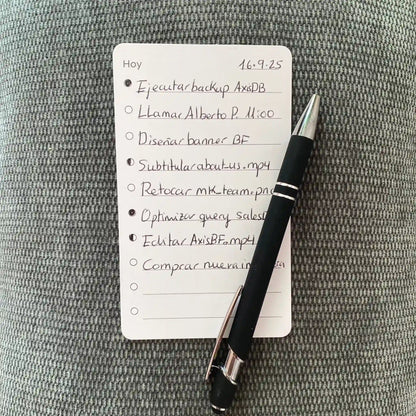 Hoy 16.9.25
Ejecutar backup AxisDB
LLamar Alberto P. 11:00
Diseñar banner BF
Subtitular about_us.mp4
Retocar mk_team.png
Optimizar query
Editar AxisBF.mp4
Comprar nueva